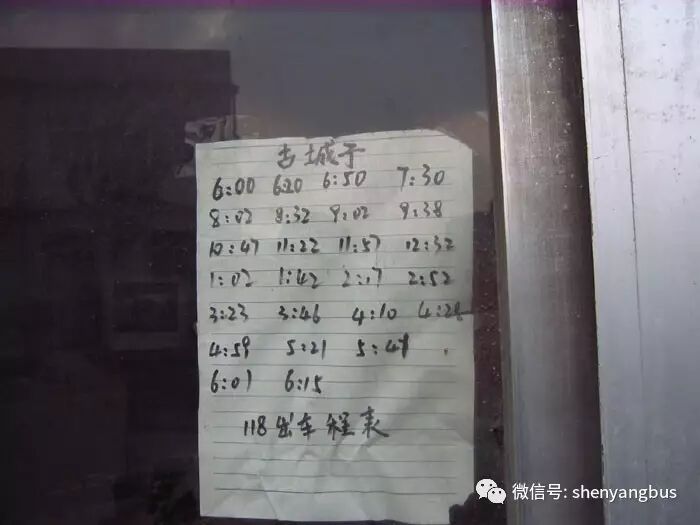 古城子
6:00 6:20 6:50 7:30
8:02 8:32 9:02 9:38
10:47 11:22 11:57 12:32
1:02 1:42 2:17 2:52
3:23 3:46 4:10
4:59 5:21
6:01 6:15
118出车程表
微信号: shenyangbus